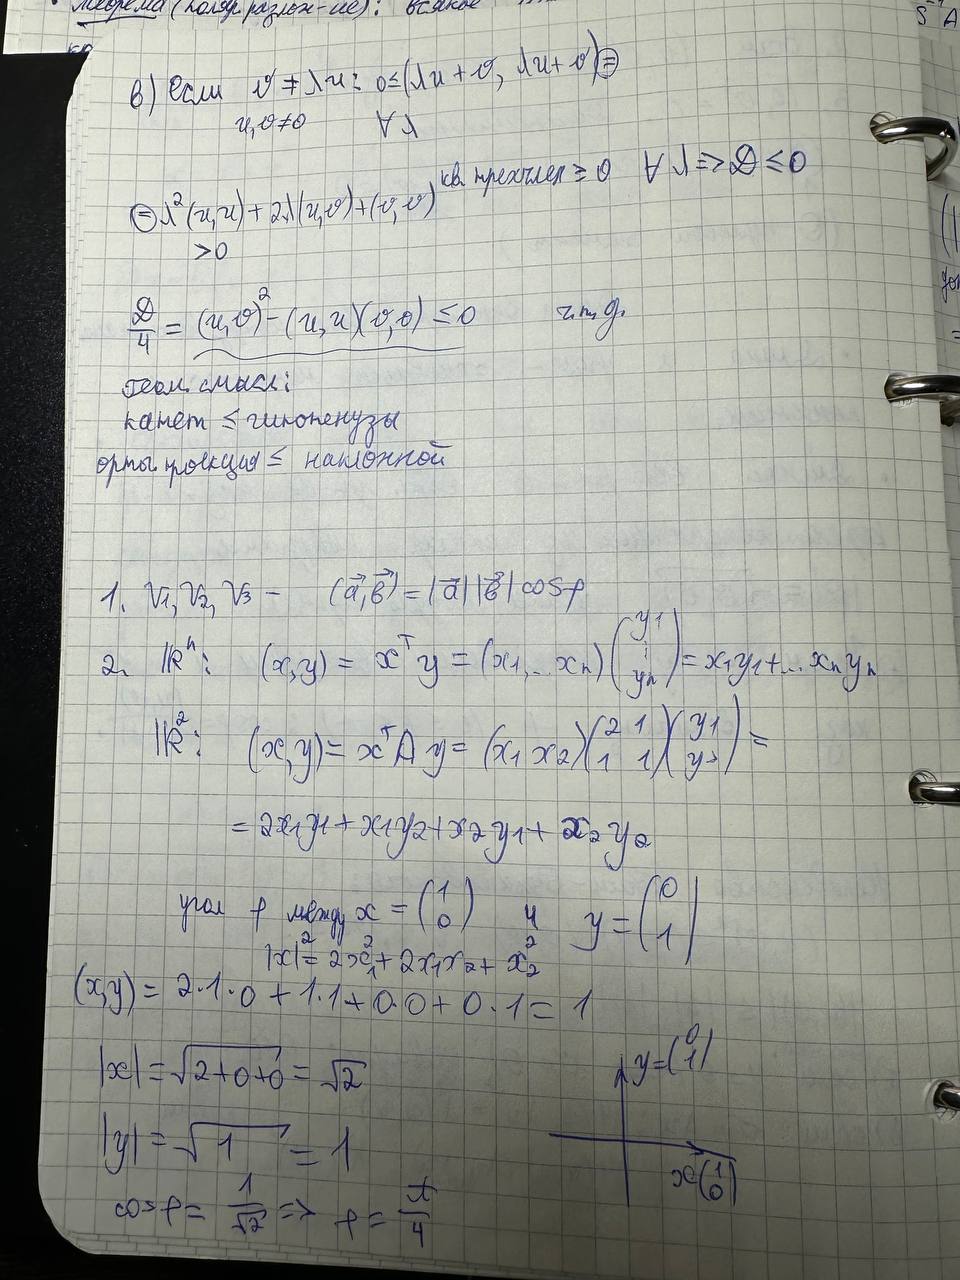 Теорема (поляр. разлож-ие): всякое
S⁻¹ A
в) Если v ≠ λu: 0 ≤ (λu + v, λu + v) ⊜
u, v ≠ 0 ∀ λ
⊜ λ² (u, u) + 2λ(u, v) + (v, v) кв. трехчлен ≥ 0 ∀ λ => D ≤ 0
> 0
D/4 = (u, v)² - (u, u)(v, v) ≤ 0 ч.т.д.
геом. смысл:
катет ≤ гипотенузы
орты проекция ≤ наклонной
1. V1, V2, V3 - (a⃗, b⃗) = |a⃗| |b⃗| cos φ
2. ℝⁿ: (x, y) = xᵀ y = (x1, ... xn) (y1 ⋮ yn) = x1y1 + ... xnyn
ℝ²: (x, y) = xᵀ A y = (x1 x2) (2 1 1 1) (y1 y2) =
= 2x1y1 + x1y2 + x2y1 + x2y2
угол φ между x = (1 0) и y = (0 1)
|x|² = 2x1² + 2x1x2 + x2²
(x, y) = 2·1·0 + 1·1 + 0·0 + 0·1 = 1
|x| = √2+0+0 = √2
y = (0 1)
|y| = √1 = 1
x (1 0)
cos φ = 1/√2 => φ = π/4